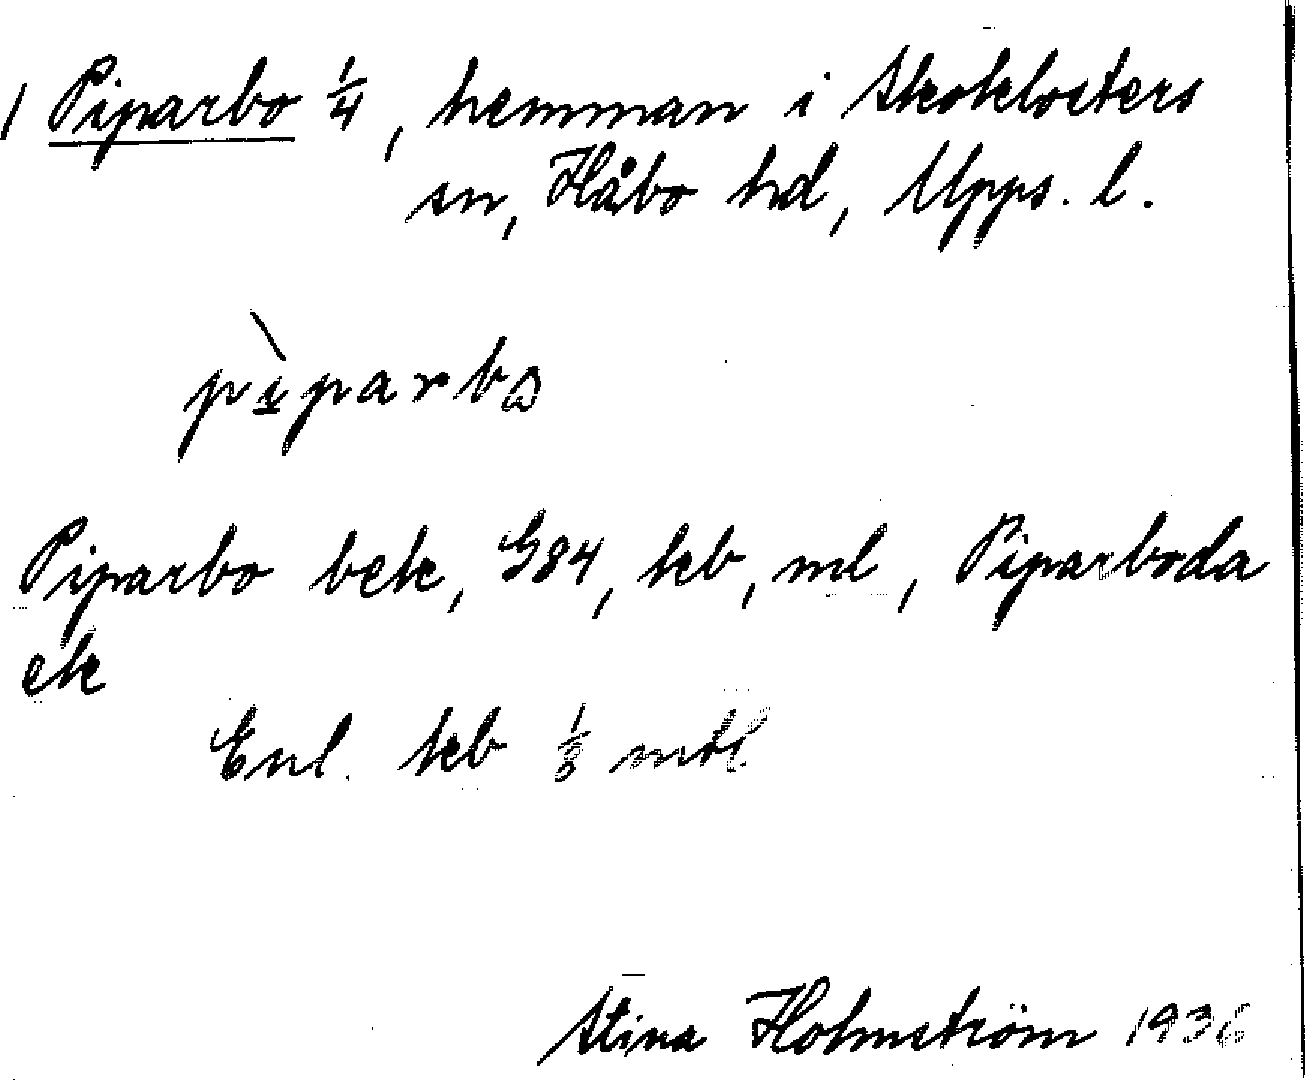 1 Piparbo 1/4, hemman i Skoklosters
sn, Håbo hd, Upps. l.
pìparbω
Piparbo bek, G84, kb, ml, Piparboda
ek
Enl. kb 1/8 mtl
Stina Holmström 1936